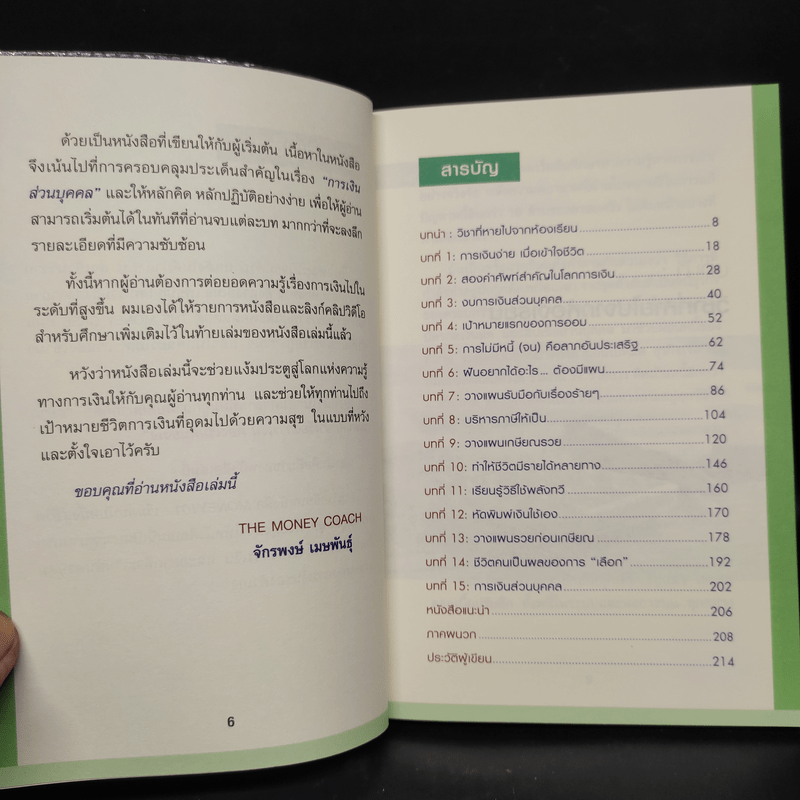 ด้วยเป็นหนังสือที่เขียนให้กับผู้เริ่มต้น เนื้อหาในหนังสือ
จึงเน้นไปที่การครอบคลุมประเด็นสำคัญในเรื่อง “การเงิน
ส่วนบุคคล” และให้หลักคิด หลักปฏิบัติอย่างง่าย เพื่อให้ผู้อ่าน
สามารถเริ่มต้นได้ในทันทีที่อ่านจบแต่ละบท มากกว่าที่จะลงลึก
รายละเอียดที่มีความซับซ้อน
ทั้งนี้หากผู้อ่านต้องการต่อยอดความรู้เรื่องการเงินไปใน
ระดับที่สูงขึ้น ผมเองได้ให้รายการหนังสือและลิงก์คลิปวิดีโอ
สำหรับศึกษาเพิ่มเติมไว้ในท้ายเล่มของหนังสือเล่มนี้แล้ว
หวังว่าหนังสือเล่มนี้จะช่วยแง้มประตูสู่โลกแห่งความรู้
ทางการเงินให้กับคุณผู้อ่านทุกท่าน และช่วยให้ทุกท่านไปถึง
เป้าหมายชีวิตการเงินที่อุดมไปด้วยความสุข ในแบบที่หวัง
และตั้งใจเอาไว้ครับ
ขอบคุณที่อ่านหนังสือเล่มนี้
THE MONEY COACH
จักรพงษ์ เมษพันธุ์
6
สารบัญ
บทนำ : วิชาที่หายไปจากห้องเรียน 8
บทที่ 1: การเงินง่าย เมื่อเข้าใจชีวิต 18
บทที่ 2: สองคำศัพท์สำคัญในโลกการเงิน 28
บทที่ 3: งบการเงินส่วนบุคคล 40
บทที่ 4: เป้าหมายแรกของการออม 52
บทที่ 5: การไม่มีหนี้ (จน) คือลาภอันประเสริฐ 62
บทที่ 6: ฝันอยากได้อะไร... ต้องมีแผน 74
บทที่ 7: วางแผนรับมือกับเรื่องร้ายๆ 86
บทที่ 8: บริหารภาษีให้เป็น 104
บทที่ 9: วางแผนเกษียณรวย 120
บทที่ 10: ทำให้ชีวิตมีรายได้หลายทาง 146
บทที่ 11: เรียนรู้วิธีใช้พลังทวี 160
บทที่ 12: หัดพิมพ์เงินใช้เอง 170
บทที่ 13: วางแผนรวยก่อนเกษียณ 178
บทที่ 14: ชีวิตคนเป็นผลของการ “เลือก” 192
บทที่ 15: การเงินส่วนบุคคล 202
หนังสือแนะนำ 206
ภาคผนวก 208
ประวัติผู้เขียน 214